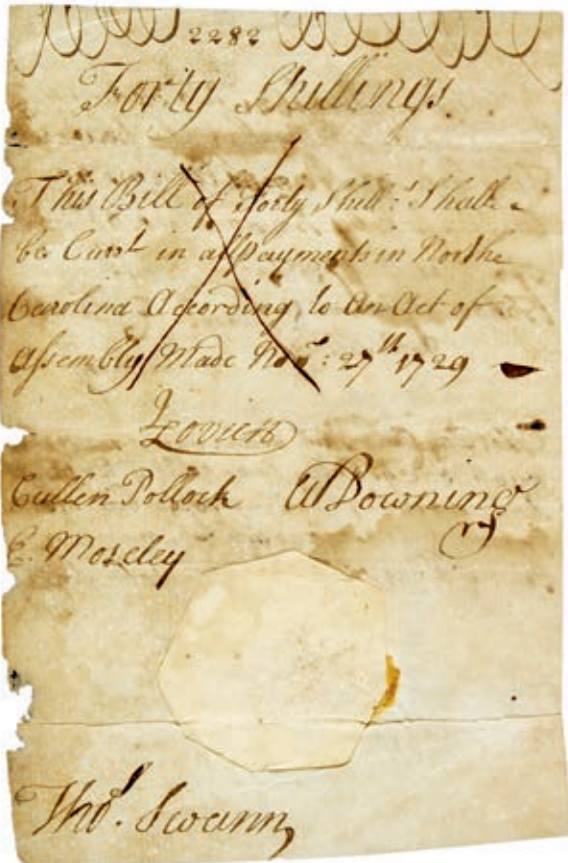 2282
Forty Shillings
This Bill of Forty Shill:s Shall
be Curr.t in all Payments in North
Carolina According to An Act of
Assembly Made Nov.r: 27th 1729
J Lovick
Cullen Pollock W Downing
E. Moseley
Tho.s Swann